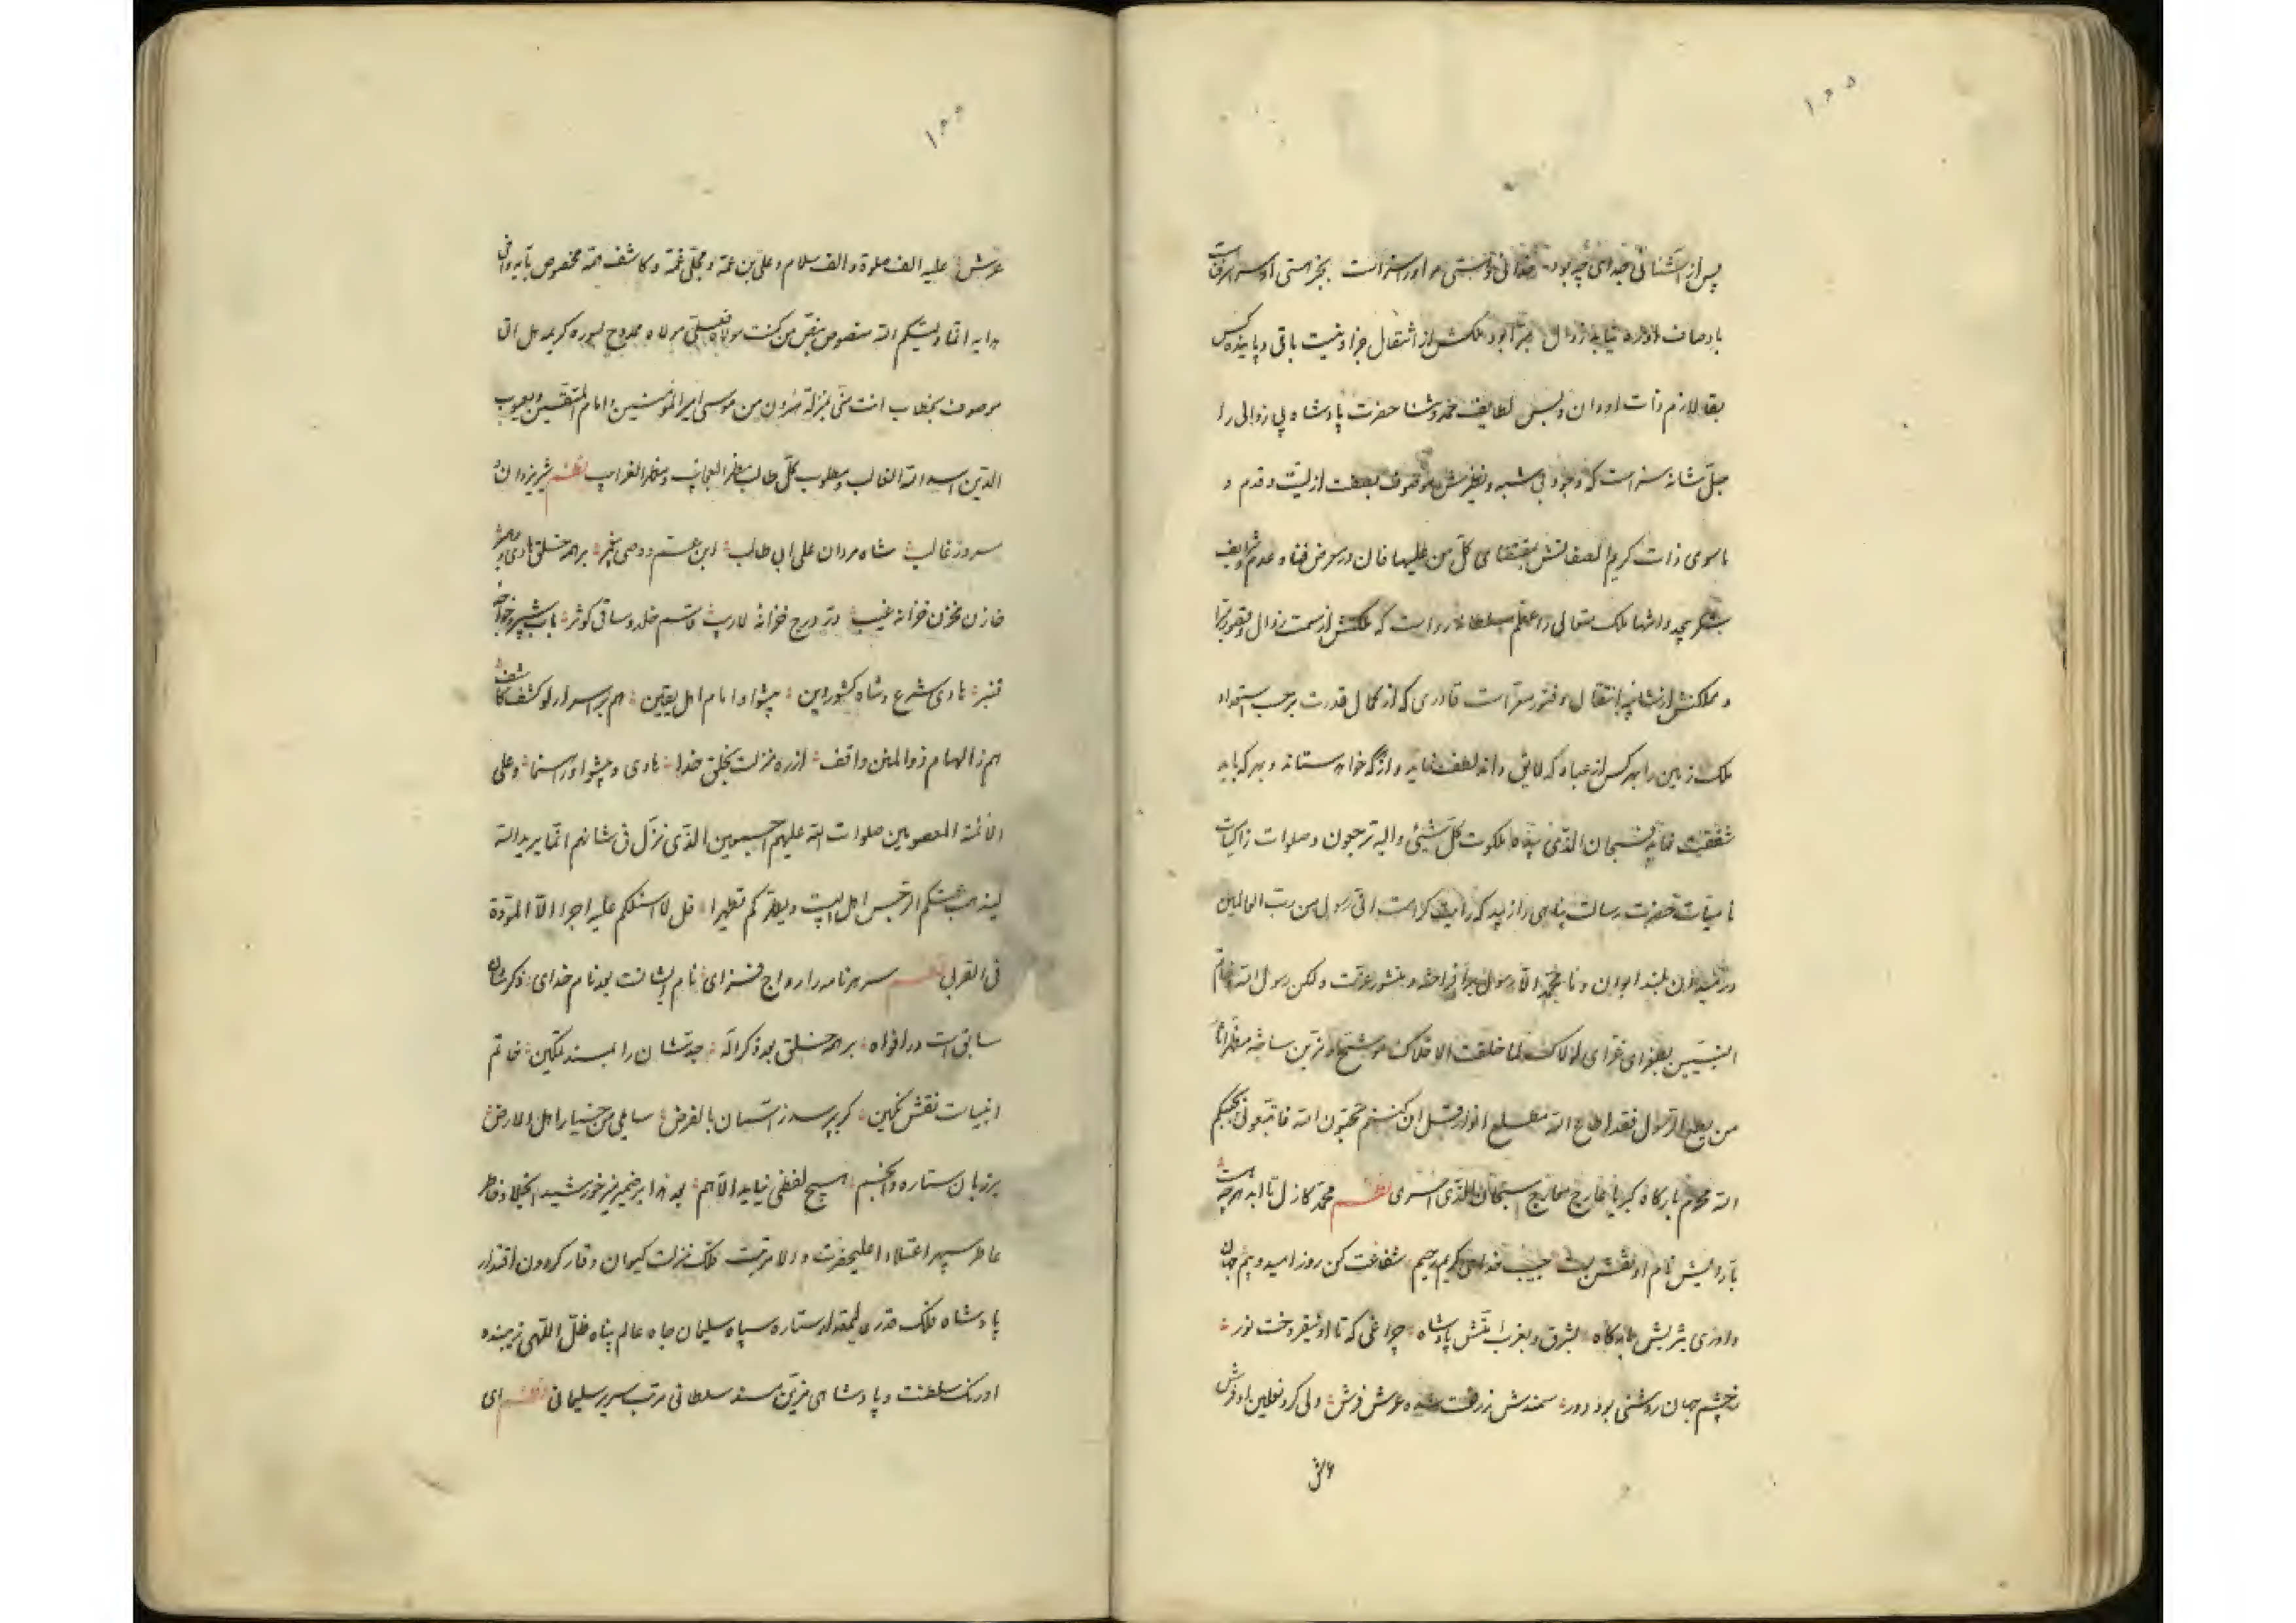 ۱۰۵
پس از آشنائی خدای چه بود خدائی و هستی مر اورا سزاست بجز هستی او سراسر فناست
باوصاف او ره نیابد زوال مبرا بود ملکش از انتقال جز او نیست باقی و پاینده کس
بقا لازم ذات او دان و بس لطایف حمد و ثنا حضرت پادشاه بی زوالی را
جل شانه سزاست که وجود بی شبه و نظیرش موصوف بصفت ازلیت و قدم و
ماسوی ذات کریم الصفاتش بمقتضای کل من علیها فان در معرض فناء و عدم شرایف
شکر بیحد و انتها ملک متعالی و اعظم سلطانه رواست که ملکش از سمت زوال و قصور مبرا
و مملکتش از شایبه انتقال و فتور معراست قادری که از کمال قدرت بر حسب استعداد
ملک زمین را بهر کس از عباد که لایق داند لطف نماید و از هرکه خواهد ستاند و بهر که باید
شفقت نماید فسبحان الذی بیده ملکوت کل شیئ و الیه ترجعون و صلوات زاکیات
نامیات حضرت رسالت پناهی را زیبد که رایت کرامت انی رسول من رب العالمین
بلند ایوان و ما محمد الا رسول برافراخته و منشور عزت و لکن رسول الله و خاتم
النبیین بطغرای غرای لولاک لما خلقت الافلاک موشح ساخته مظهر آثار
من یطع الرسول فقد اطاع الله مطلع انوار قل ان کنتم تحبون الله فاتبعونی یحببکم
الله محرم بارگاه کبریا عارج معارج سبحان الذی اسری نظم محمد کازل تا ابد هرچه هست
بآرایش نام او نقش بست حبیب خدای کریم رحیم شفاعت کن روز امید و بیم جهان
داوری یثربش بارگاه بشرق و بغرب امتش پادشاه چراغی که تا او نیفروخت نور
ز چشم جهان روشنی بود دور سمندش زرفعت شده عرش فرش ولی گرد نعلین او فرش
عرش
۱۰۶
عرش علیه الف صلوة و الف سلام و علی بن عمه و مجلی غمه و کاشف همه مخصوص بآیه وافی
هدایه انما ولیکم الله منصوص بنص من کنت مولاه فعلی مولاه ممدوح بسوره کریمه هل اتی
موصوف بخطاب انت منی بمنزلة هرون من موسی امیر المؤمنین و امام المتقین و یعسوب
الدین اسد الله الغالب و مطلوب کل طالب مظهر العجایب و مظهر الغرایب نظم شیر یزدان و
سرور غالب شاه مردان علی ابی طالب ابن عم و وصی پیغمبر بر همه خلق هادی و رهبر
خازن مخزن خزانه غیب در درج خزانه لاریب قاسم خلد و ساقی کوثر باب شبیر و خواجه
قنبر هادی شرع و شاه کشور دین پیشوا و امام اهل یقین هم ز اسرار لو کشف کاشف
هم ز الهام ذوالمنن واقف از ره منزلت بخلق خدا هادی و پیشوا و راهنما و علی
الائمة المعصومین صلوات الله علیهم اجمعین الذی نزل فی شانهم انما یرید الله
لیذهب عنکم الرجس اهل البیت و یطهرکم تطهیرا قل لا اسئلکم علیه اجرا الا المودة
فی القربی نظم سر هر نامه را رواج فزای نام ایشانست بعد نام خدای ذکرشان
سابق است در افواه بر همه خلق بعد ذکر اله جدشان را بمسند تمکین خاتم
انبیاست نقش نگین گر بپرسد ز آسمان بالفرض سایلی من خیار اهل الارض
بر زبان ستاره و انجم هیچ لفظی نیاید الا هم بعد هذا بر ضمیر منیر خورشید انجلا و خاطر
عاطر سپهر اعتلاء اعلیحضرت والا مرتبت فلک منزلت کیوان وقار گردون اقتدار
پادشاه فلک قدر ستاره سپاه سلیمان جاه عالم پناه ظل اللهی زیبنده
اورنگ سلطنت و پادشاهی مزین مسند سلطانی مرتب سریر سلیمانی نظم ای